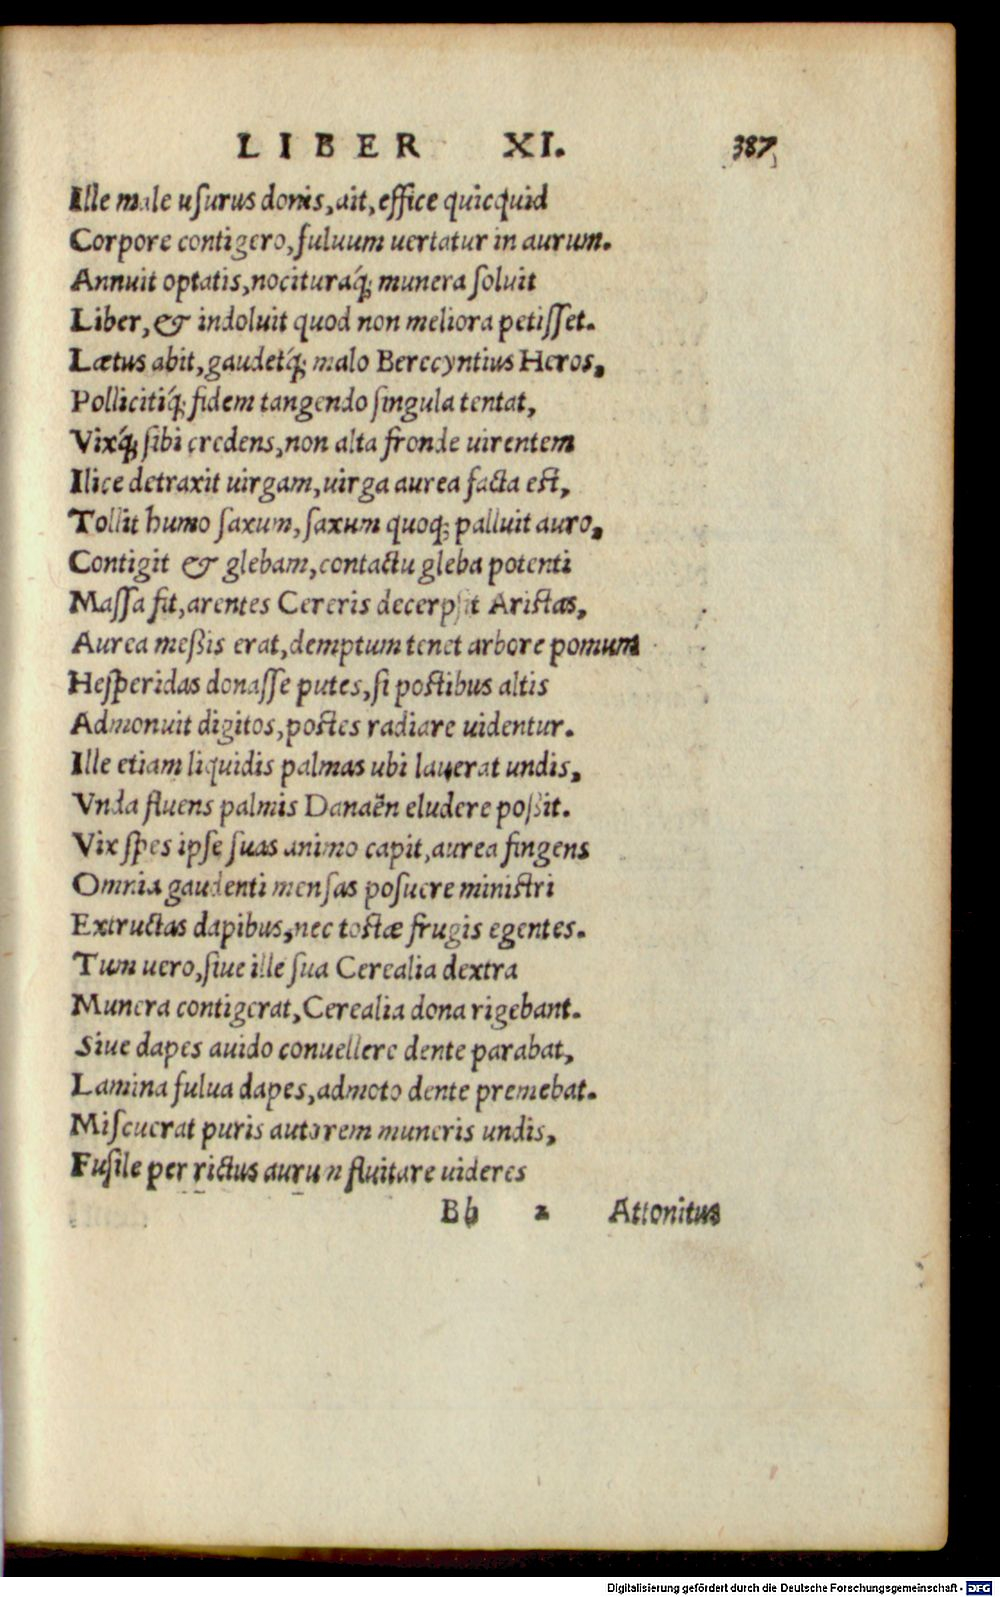 LIBER XI. 387
Ille male uſurus donis, ait, effice quicquid
Corpore contigero, fuluum uertatur in aurum.
Annuit optatis, nocituraq́; munera ſoluit
Liber, & indoluit quod non meliora petiſſet.
Lætus abit, gaudetq́; malo Berecyntius Heros,
Pollicitiq́; fidem tangendo ſingula tentat,
Vixq́; ſibi credens, non alta fronde uirentem
Ilice detraxit uirgam, uirga aurea facta eſt,
Tollit humo ſaxum, ſaxum quoq; palluit auro,
Contigit & glebam, contactu gleba potenti
Maſſa fit, arentes Cereris decerpſit Ariſtas,
Aurea meßis erat, demptum tenet arbore pomum
Heſperidas donaſſe putes, ſi poſtibus altis
Admonuit digitos, poſtes radiare uidentur.
Ille etiam liquidis palmas ubi lauerat undis,
Vnda fluens palmis Danaën eludere poßit.
Vix ſpes ipſe ſuas animo capit, aurea fingens
Omnia gaudenti menſas poſuere miniſtri
Extructas dapibus, nec toſtæ frugis egentes.
Tum uero, ſiue ille ſua Cerealia dextra
Munera contigerat, Cerealia dona rigebant.
Siue dapes auido conuellere dente parabat,
Lamina fulua dapes, admoto dente premebat.
Miſcuerat puris autorem muneris undis,
Fuſile per rictus aurum fluitare uideres
Bb 2 Attonitus
Digitalisierung gefördert durch die Deutsche Forschungsgemeinschaft - DFG